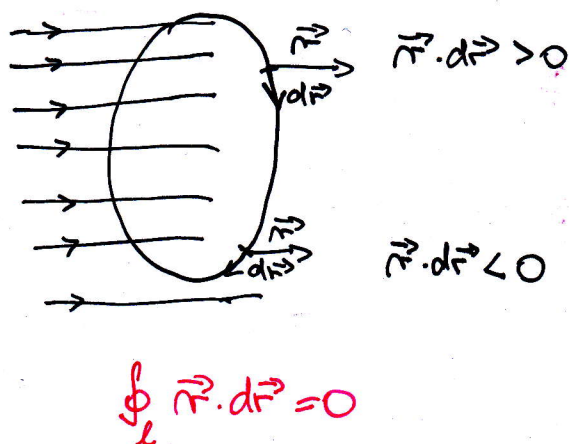 v⃗
v⃗·dr⃗ > 0
dr⃗
v⃗
dr⃗
v⃗·dr⃗ < 0
∮ₗ v⃗·dr⃗ = 0